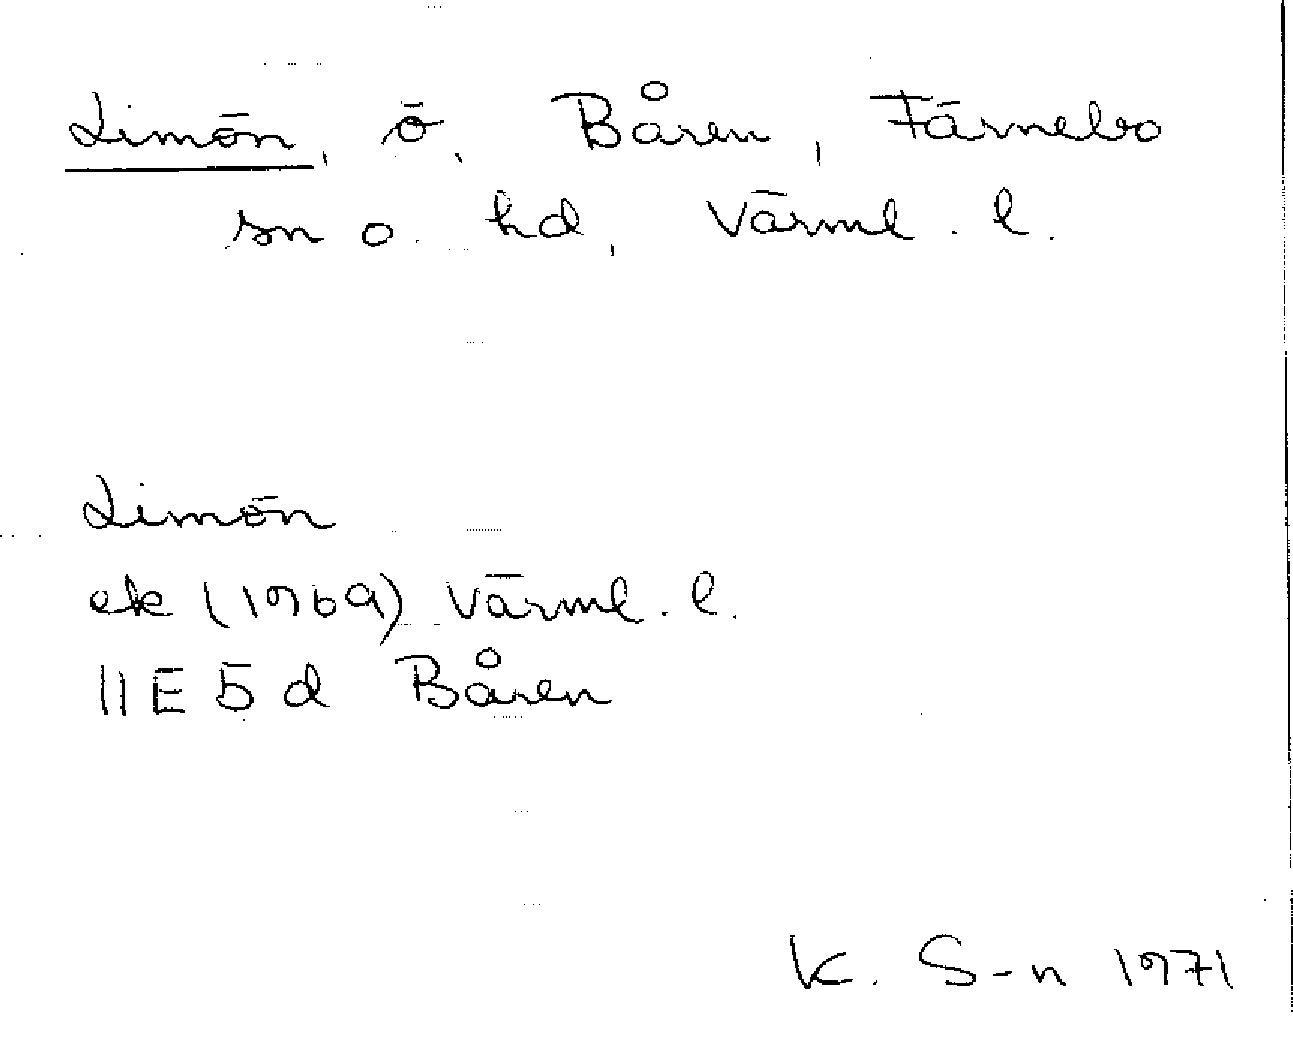 Limön, ö, Båren, Färnebo
sn o. hd, Värml. l.
Limön
ek (1969) Värml. l.
11E 5d Båren
K. S-n 1971